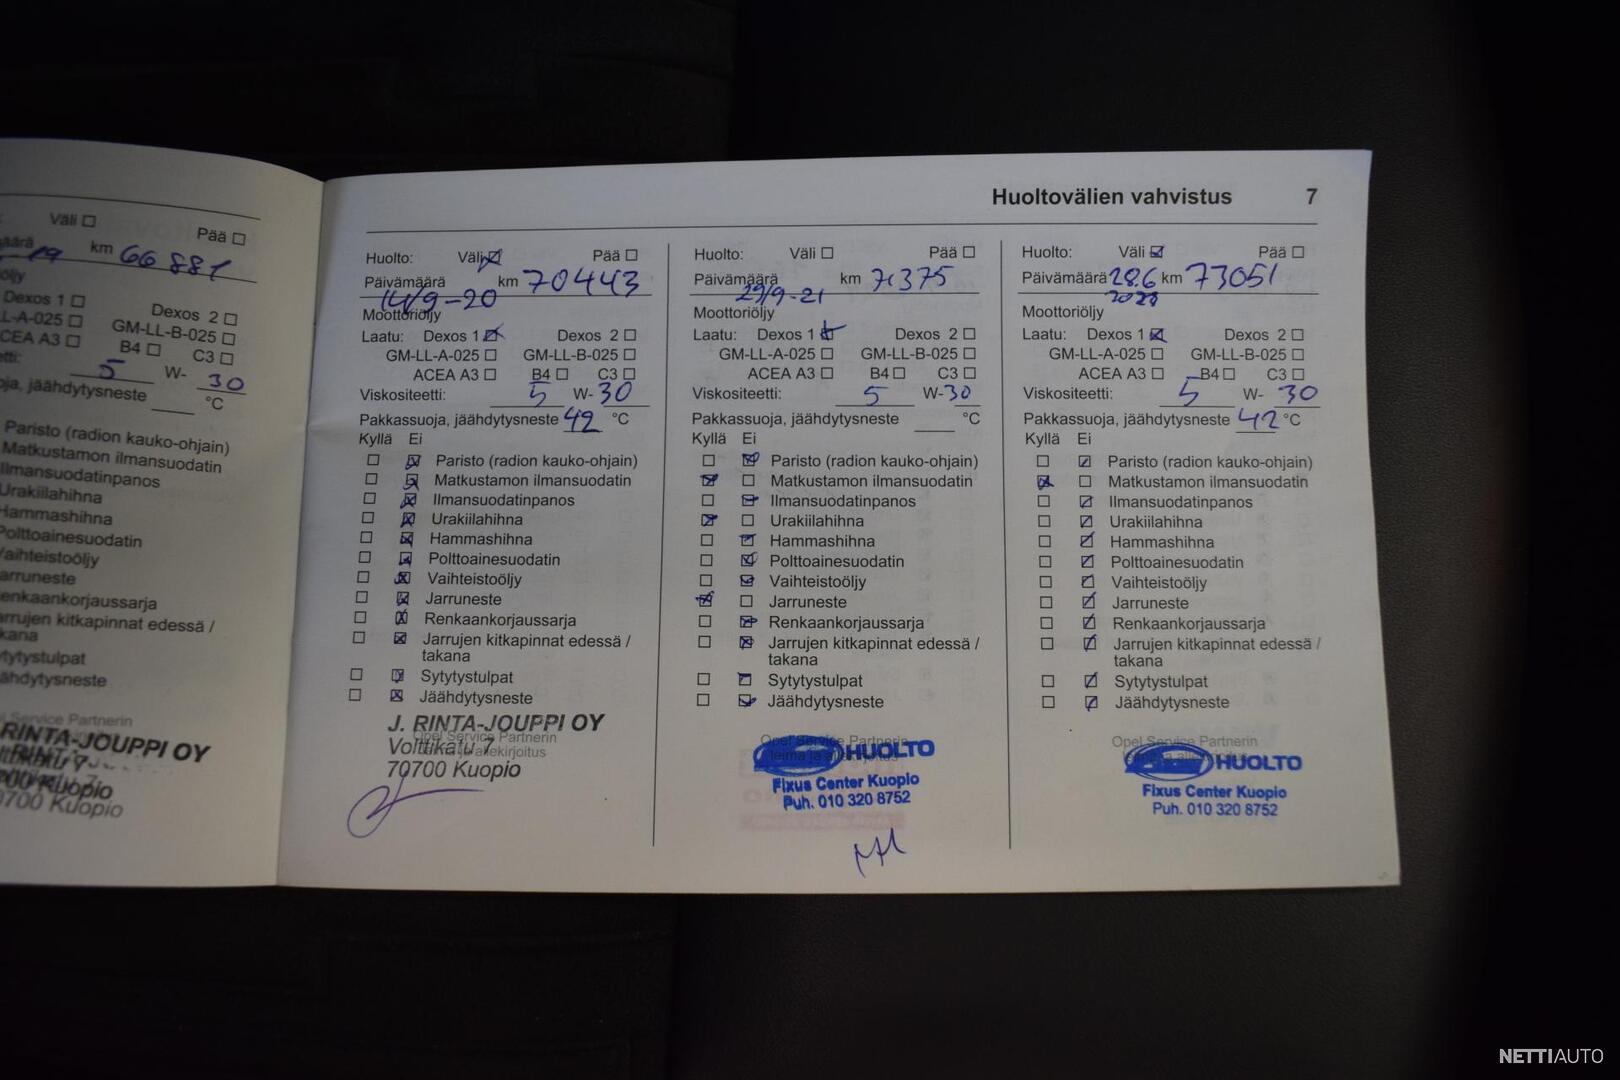 Väli ☐ Pää ☐
km 66 881
Dexos 1 ☐ Dexos 2 ☐
GM-LL-B-025 ☐
B4 ☐ C3 ☐
5 W- 30
jäähdytysneste °C
Paristo (radion kauko-ohjain)
Matkustamon ilmansuodatin
Ilmansuodatinpanos
Urakiilahihna
Hammashihna
Polttoainesuodatin
Vaihteistoöljy
Jarruneste
Renkaankorjaussarja
kitkapinnat edessä /
Sytytystulpat
Jäähdytysneste
RINTA-JOUPPI OY
Kuopio
Huoltovälien vahvistus 7
Huolto: Väli ☒ Pää ☐
Päivämäärä km 70443
14/9-20
Moottoriöljy
Laatu: Dexos 1 ☒ Dexos 2 ☐
GM-LL-A-025 ☐ GM-LL-B-025 ☐
ACEA A3 ☐ B4 ☐ C3 ☐
Viskositeetti: 5 W- 30
Pakkassuoja, jäähdytysneste 42 °C
Kyllä Ei
☐ ☒ Paristo (radion kauko-ohjain)
☐ ☒ Matkustamon ilmansuodatin
☐ ☒ Ilmansuodatinpanos
☐ ☒ Urakiilahihna
☐ ☒ Hammashihna
☐ ☒ Polttoainesuodatin
☐ ☒ Vaihteistoöljy
☐ ☒ Jarruneste
☐ ☒ Renkaankorjaussarja
☐ ☒ Jarrujen kitkapinnat edessä /
takana
☐ ☒ Sytytystulpat
☐ ☒ Jäähdytysneste
J. RINTA-JOUPPI OY
Opel Service Partnerin
Volttikatu 7
70700 Kuopio
Huolto: Väli ☐ Pää ☐
Päivämäärä km 71375
29/9-21
Moottoriöljy
Laatu: Dexos 1 ☒ Dexos 2 ☐
GM-LL-A-025 ☐ GM-LL-B-025 ☐
ACEA A3 ☐ B4 ☐ C3 ☐
Viskositeetti: 5 W-30
Pakkassuoja, jäähdytysneste °C
Kyllä Ei
☐ ☒ Paristo (radion kauko-ohjain)
☒ ☐ Matkustamon ilmansuodatin
☐ ☒ Ilmansuodatinpanos
☒ ☐ Urakiilahihna
☐ ☒ Hammashihna
☐ ☒ Polttoainesuodatin
☐ ☒ Vaihteistoöljy
☒ ☐ Jarruneste
☐ ☒ Renkaankorjaussarja
☐ ☒ Jarrujen kitkapinnat edessä /
takana
☐ ☒ Sytytystulpat
☐ ☒ Jäähdytysneste
Opel Service Partnerin
HUOLTO
Fixus Center Kuopio
Puh. 010 320 8752
Huolto: Väli ☒ Pää ☐
Päivämäärä 28.6 km 73051
Moottoriöljy
Laatu: Dexos 1 ☒ Dexos 2 ☐
GM-LL-A-025 ☐ GM-LL-B-025 ☐
ACEA A3 ☐ B4 ☐ C3 ☐
Viskositeetti: 5 W- 30
Pakkassuoja, jäähdytysneste 42 °C
Kyllä Ei
☐ ☒ Paristo (radion kauko-ohjain)
☒ ☐ Matkustamon ilmansuodatin
☐ ☒ Ilmansuodatinpanos
☐ ☒ Urakiilahihna
☐ ☒ Hammashihna
☐ ☒ Polttoainesuodatin
☐ ☒ Vaihteistoöljy
☐ ☒ Jarruneste
☐ ☒ Renkaankorjaussarja
☐ ☒ Jarrujen kitkapinnat edessä /
takana
☐ ☒ Sytytystulpat
☐ ☒ Jäähdytysneste
Opel Service Partnerin
HUOLTO
Fixus Center Kuopio
Puh. 010 320 8752
NETTIAUTO